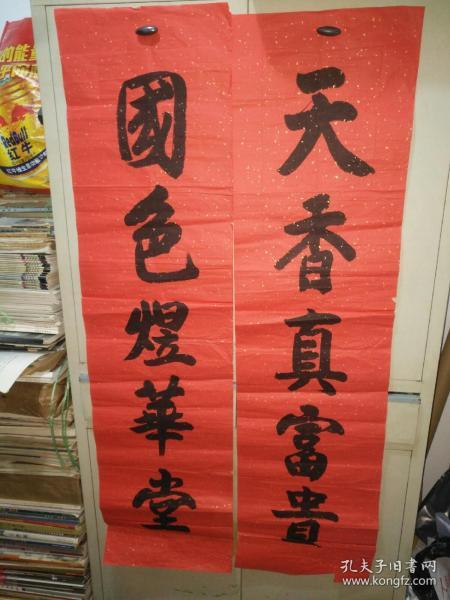 天香真富貴
國色煜華堂
的能量
RedBull
红牛
孔夫子旧书网
www.kongfz.com